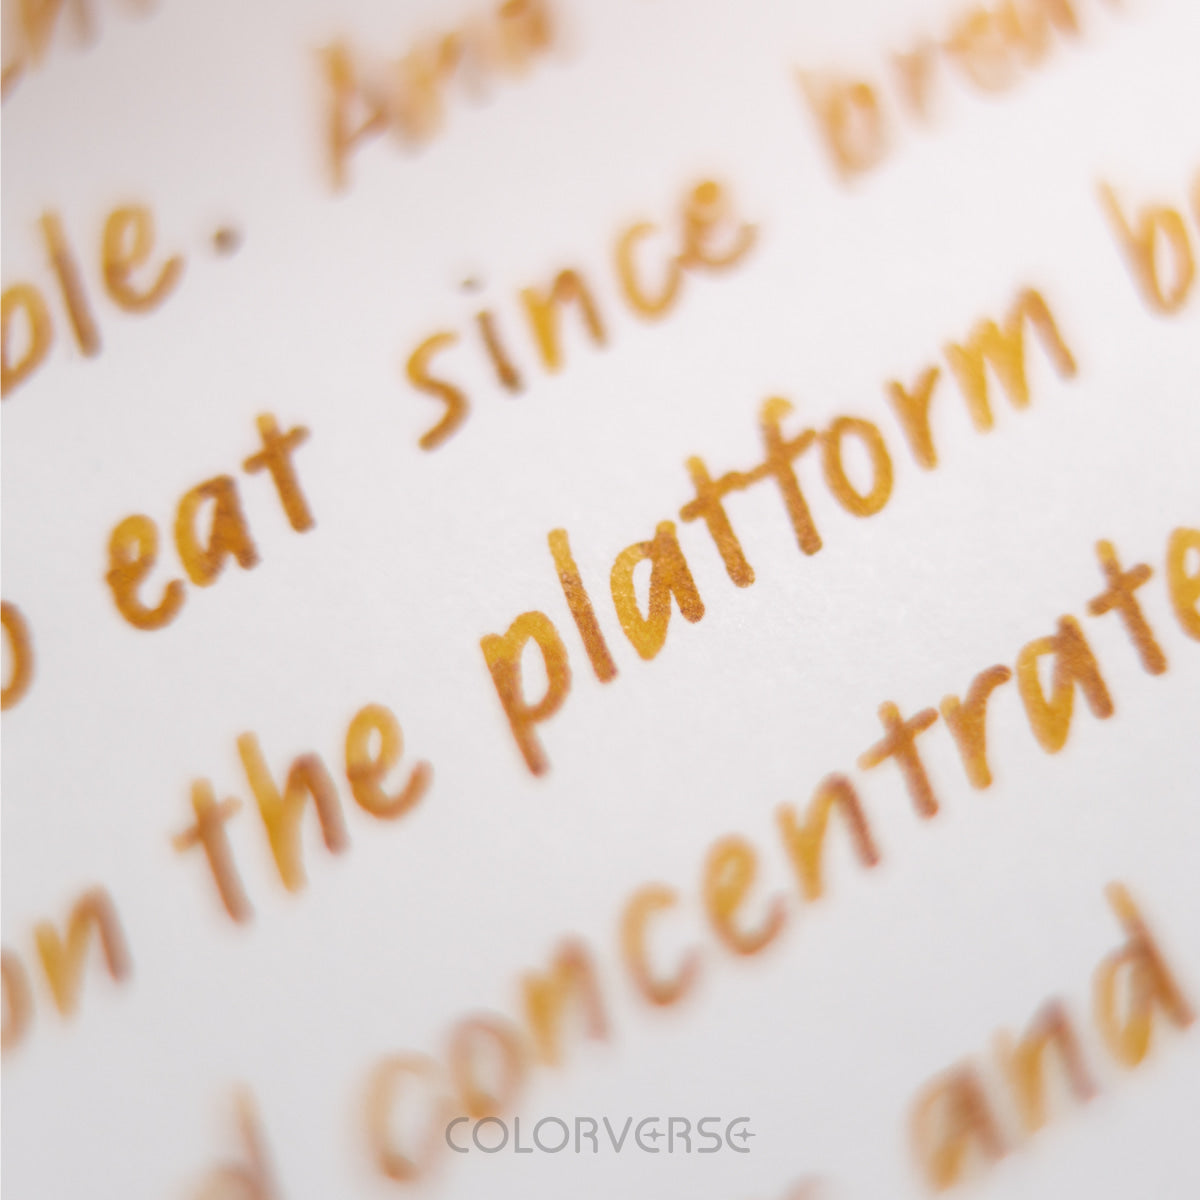 ple. And
o eat since
on the platform be
d concentrate
and
COLORVERSE